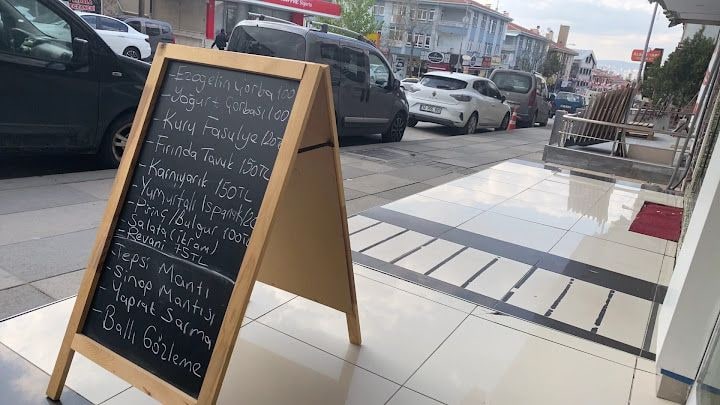 - Ezogelin Çorba 100
- Yoğurt Çorbası 100
- Kuru Fasulye 120TL
- Fırında Tavuk 150TL
- Karnıyarık 150TL
- Yumurtalı Ispanak 120
- Pirinç/Bulgur 100TL
- Salata (İkram)
- Revani 75TL
- Tepsi Mantı
- Sinop Mantısı
- Yaprak Sarma
- Ballı Gözleme